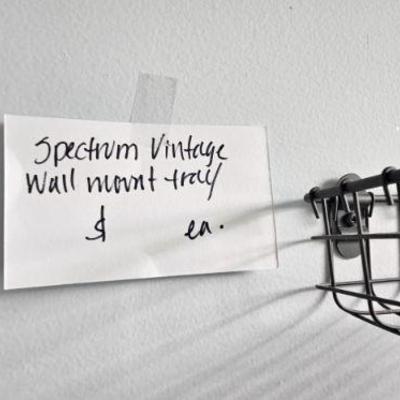 Spectrum Vintage
Wall mount tray
$ ea.